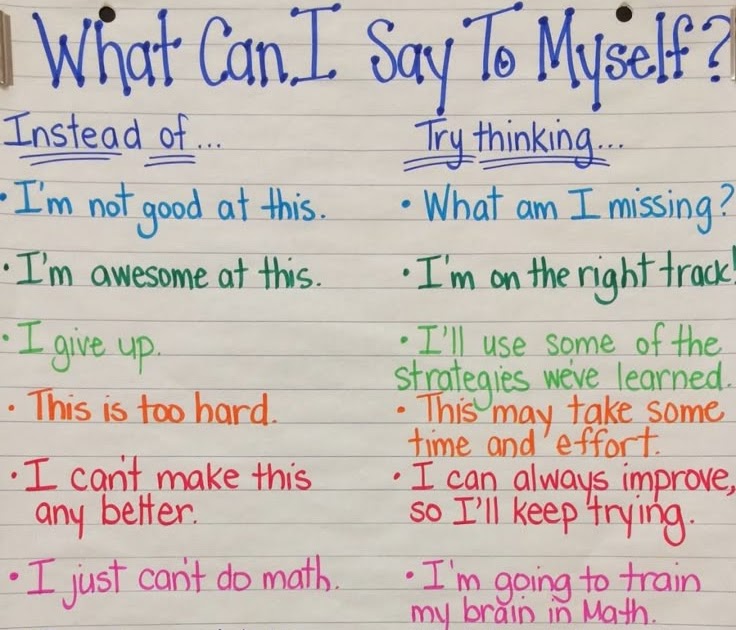 What Can I Say To Myself?
Instead of...
Try thinking...
• I'm not good at this.
• What am I missing?
• I'm awesome at this.
• I'm on the right track!
• I give up.
• I'll use some of the
strategies we've learned.
• This is too hard.
• This may take some
time and effort.
• I can't make this
any better.
• I can always improve,
so I'll keep trying.
• I just can't do math.
• I'm going to train
my brain in Math.